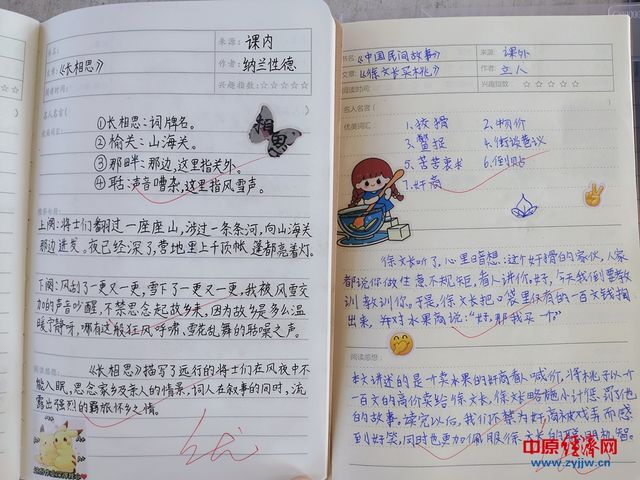 来源：课内
文章：《长相思》
作者：纳兰性德
阅读时间：
兴趣指数：☆☆☆☆☆
名人名言（
①长相思：词牌名。
②榆关：山海关。
③那畔：那边，这里指关外。
④聒：声音嘈杂，这里指风雪声。
上阕：将士们翻过一座座山，涉过一条条河，向山海关
那边进发。夜已经深了，营地里上千顶帐篷都亮着灯。
下阕：风刮了一更又一更，雪下了一更又一更，我被风雪交
加的声音吵醒，不禁思念起故乡来，因为故乡是多么温
暖宁静呀，哪有这般狂风呼啸、雪花乱舞的聒噪之声。
《长相思》描写了远行的将士们在风夜中不
能入眠，思念家乡及亲人的情景，词人在叙事的同时，流
露出强烈的羁旅怀乡之情。
优
书名：《中国民间故事》
来源：课外
文章：《徐文长买桃》
作者：立人
阅读时间：
兴趣指数：☆☆☆☆☆
名人名言（
优美词汇：
1、狡猾 2、物价
3、瞥捉 4、街谈巷议
5、苦苦哀求 6、倒贴
7、奸商
徐文长听了，心里暗想：这个奸猾的家伙，人家
都说你做生意不规矩，看人讲价。好，今天我倒要教
训教训你。于是，徐文长把口袋里仅有的一百文钱掏
出来，并对水果商说：“好，那我买一个”
阅读感想：
本文讲述的是个卖水果的奸商看人喊价，将桃子以一个
百文的高价卖给徐文长，徐文长略施小计惩罚了他
的故事。读完以后，我们不禁为奸商被戏弄而感
到好笑，同时也更加佩服徐文长的聪明机智。
中原经济网
www.zyjjw.cn